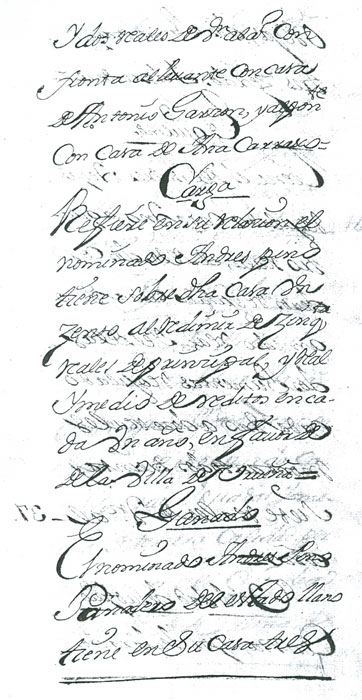 Y dos reales de Vn. abaxo Con
fronta al levante con casa
de Antonio Garzon, y algon
Con Casa de Ana Carrasco=
Carga
Refiere en su relazion el
nominado Andres Pino
tiene sobre dha Casa Vn
Zenso al redimir de Zinqta
reales de prinzipal, y real
Y medio de redito en ca-
da Vn ano, en favor de
de la Villa de
Ganado
El nominado Andres Pino
del estado llano
tiene en su Casa tres